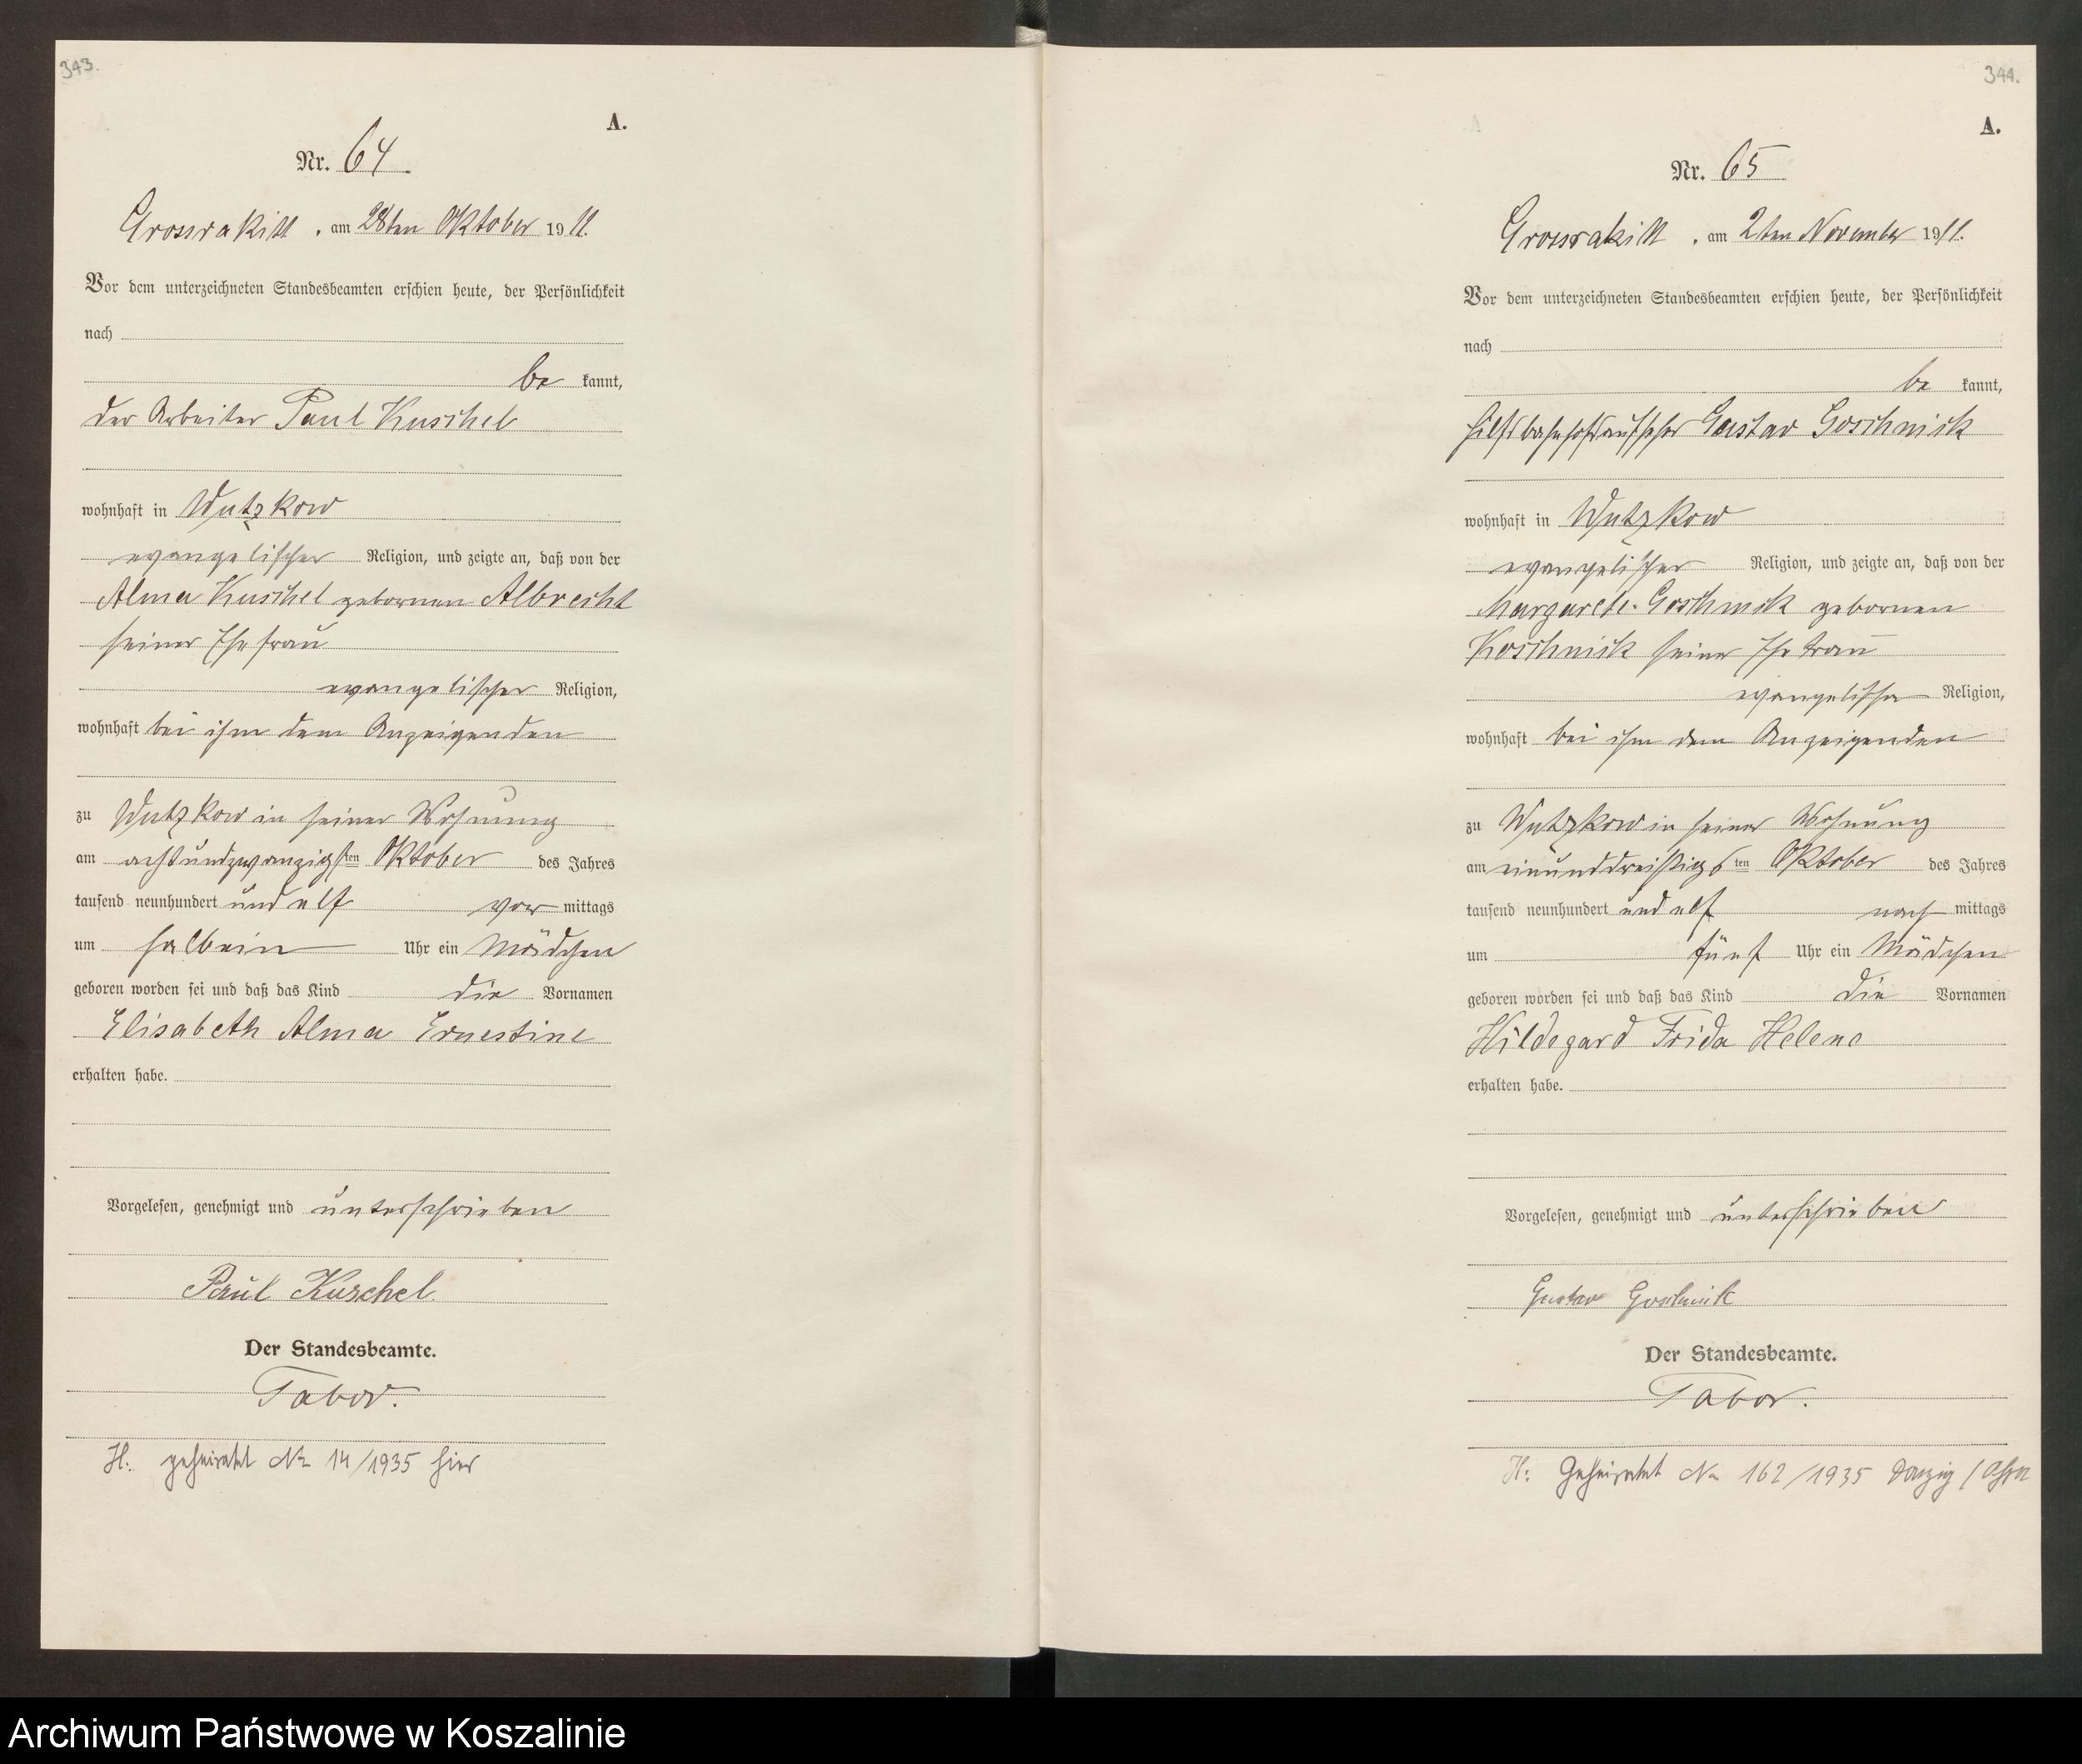 343.
A.
Nr. 64
Grossrakitt, am 28ten Oktober 1911.
Vor dem unterzeichneten Standesbeamten erschien heute, der Persönlichkeit
nach
be kannt,
der Arbeiter Paul Kuschel
wohnhaft in Wutzkow
evangelischer Religion, und zeigte an, daß von der
Alma Kuschel gebornen Albrecht
seiner Ehefrau
evangelischer Religion,
wohnhaft bei ihm dem Anzeigenden
zu Wutzkow in seiner Wohnung
am achtundzwanzigsten Oktober des Jahres
tausend neunhundert und elf vor mittags
um halbein Uhr ein Mädchen
geboren worden sei und daß das Kind die Vornamen
Elisabeth Alma Ernestine
erhalten habe.
Vorgelesen, genehmigt und unterschrieben
Paul Kuschel.
Der Standesbeamte.
Tabor.
H: geheiratet Nr 14/1935 hier
344.
A.
Nr. 65
Grossrakitt, am 2ten November 1911.
Vor dem unterzeichneten Standesbeamten erschien heute, der Persönlichkeit
nach
be kannt,
Hilfsbahnhofsaufseher Gustav Goschnick
wohnhaft in Wutzkow
evangelischer Religion, und zeigte an, daß von der
Margarete Goschnick gebornen
Koschnick seiner Ehefrau
evangelischer Religion,
wohnhaft bei ihm dem Anzeigenden
zu Wutzkow in seiner Wohnung
am einunddreissigsten Oktober des Jahres
tausend neunhundert und elf nach mittags
um fünf Uhr ein Mädchen
geboren worden sei und daß das Kind die Vornamen
Hildegard Frida Helene
erhalten habe.
Vorgelesen, genehmigt und unterschrieben
Gustav Goschnick
Der Standesbeamte.
Tabor.
H: Geheiratet Nr 162/1935 Danzig /
Archiwum Państwowe w Koszalinie